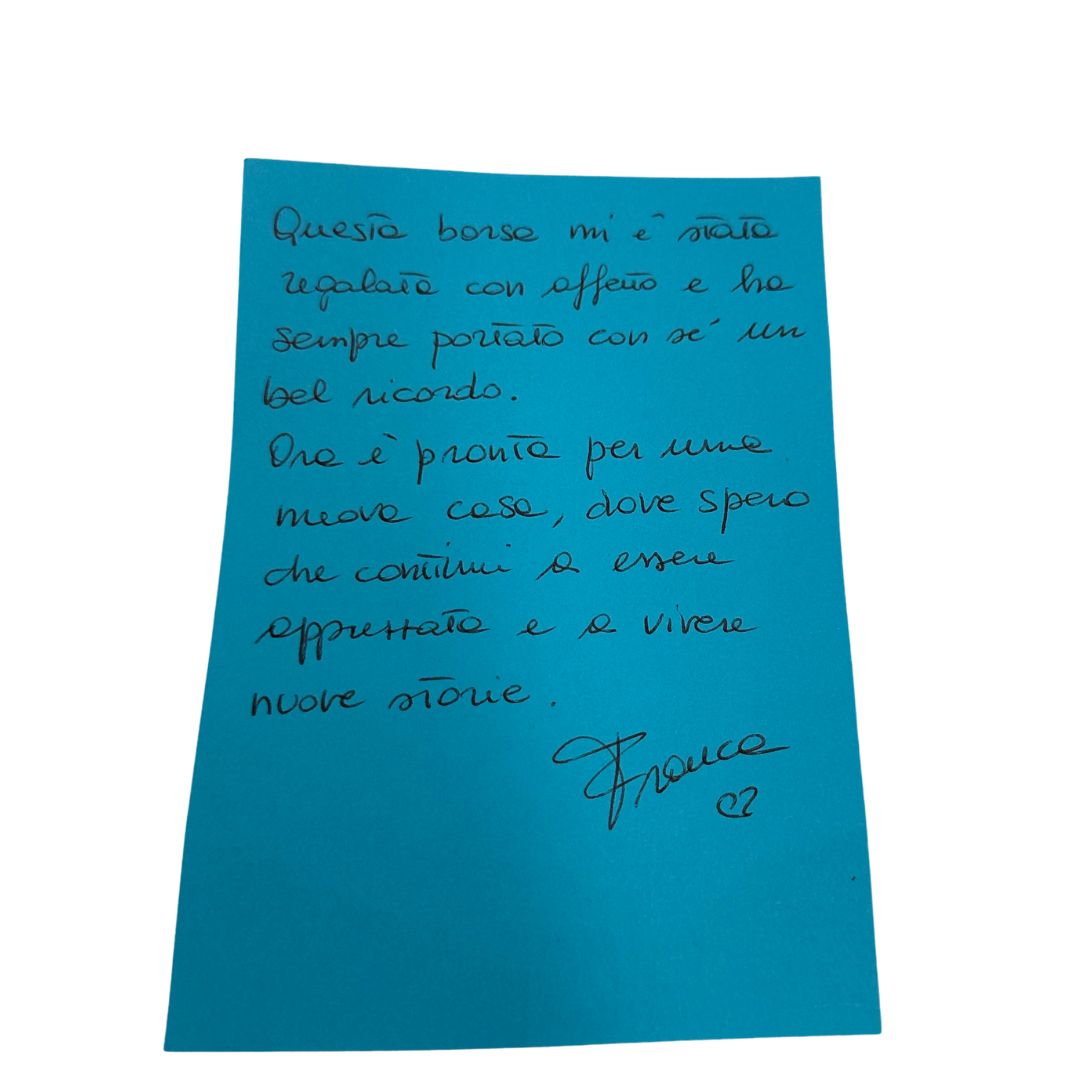 Questa borsa mi è stata
regalata con affetto e ha
sempre portato con sé un
bel ricordo.
Ora è pronta per una
nuova casa, dove spero
che continui a essere
apprezzata e a vivere
nuove storie.
Franca